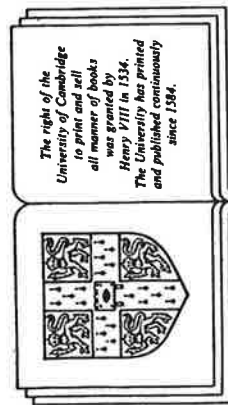 The right of the
University of Cambridge
to print and sell
all manner of books
was granted by
Henry VIII in 1534.
The University has printed
and published continuously
since 1584.